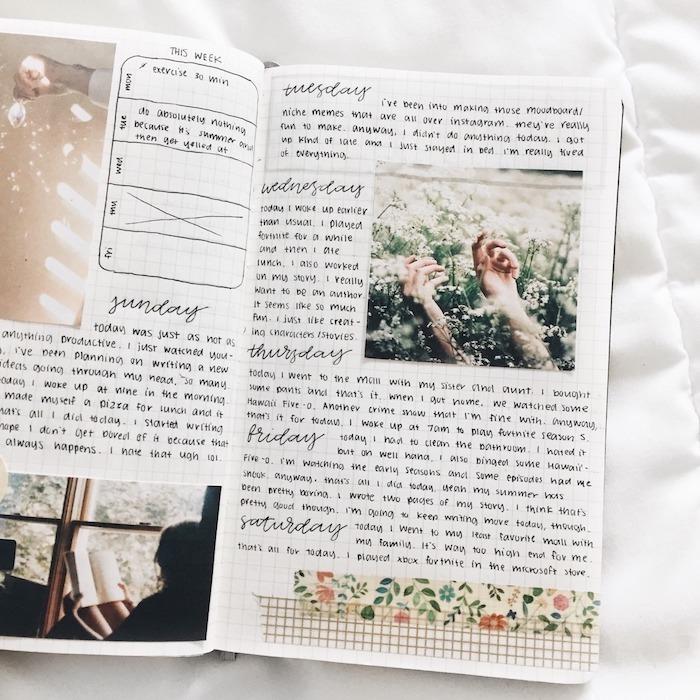 THIS WEEK
mon
exercise 30 min
tue
do absolutely nothing
because it's summer and
then get yelled at
wed
thu
fri
sunday
today was just as not as
anything productive. I just watched you-
I've been planning on writing a new
ideas going through my head, so many.
today I woke up at nine in the morning.
made myself a pizza for lunch and it
that's all I did today. I started writing
hope I don't get bored of it because that
always happens. I hate that ugh lol.
tuesday
i've been into making those moodboard/
niche memes that are all over instagram. they're really
fun to make. anyway, I didn't do anything today. I got
up kind of late and I just stayed in bed. I'm really tired
of everything.
wednesday
today I woke up earlier
than usual. I played
fortnite for a while
and then I ate
lunch. I also worked
on my story. I really
want to be an author.
It seems like so much
fun. I just like creat-
ing characters/stories.
thursday
today I went to the mall with my sister and aunt. I bought
some pants and that's it. when I got home, we watched some
Hawaii Five-0. Another crime show that I'm fine with. anyway,
that's it for today. I woke up at 7am to play fortnite season 5.
friday
today I had to clean the bathroom. I hated it
but oh well haha. I also binged some Hawaii-
Five-0. I'm watching the early seasons and some episodes had me
shook. anyway, that's all I did today. yeah my summer has
been pretty boring. I wrote two pages of my story. I think that's
pretty good though. I'm going to keep writing more today, though.
saturday
today I went to my least favorite mall with
my family. It's way too high end for me.
that's all for today. I played xbox fortnite in the microsoft store.